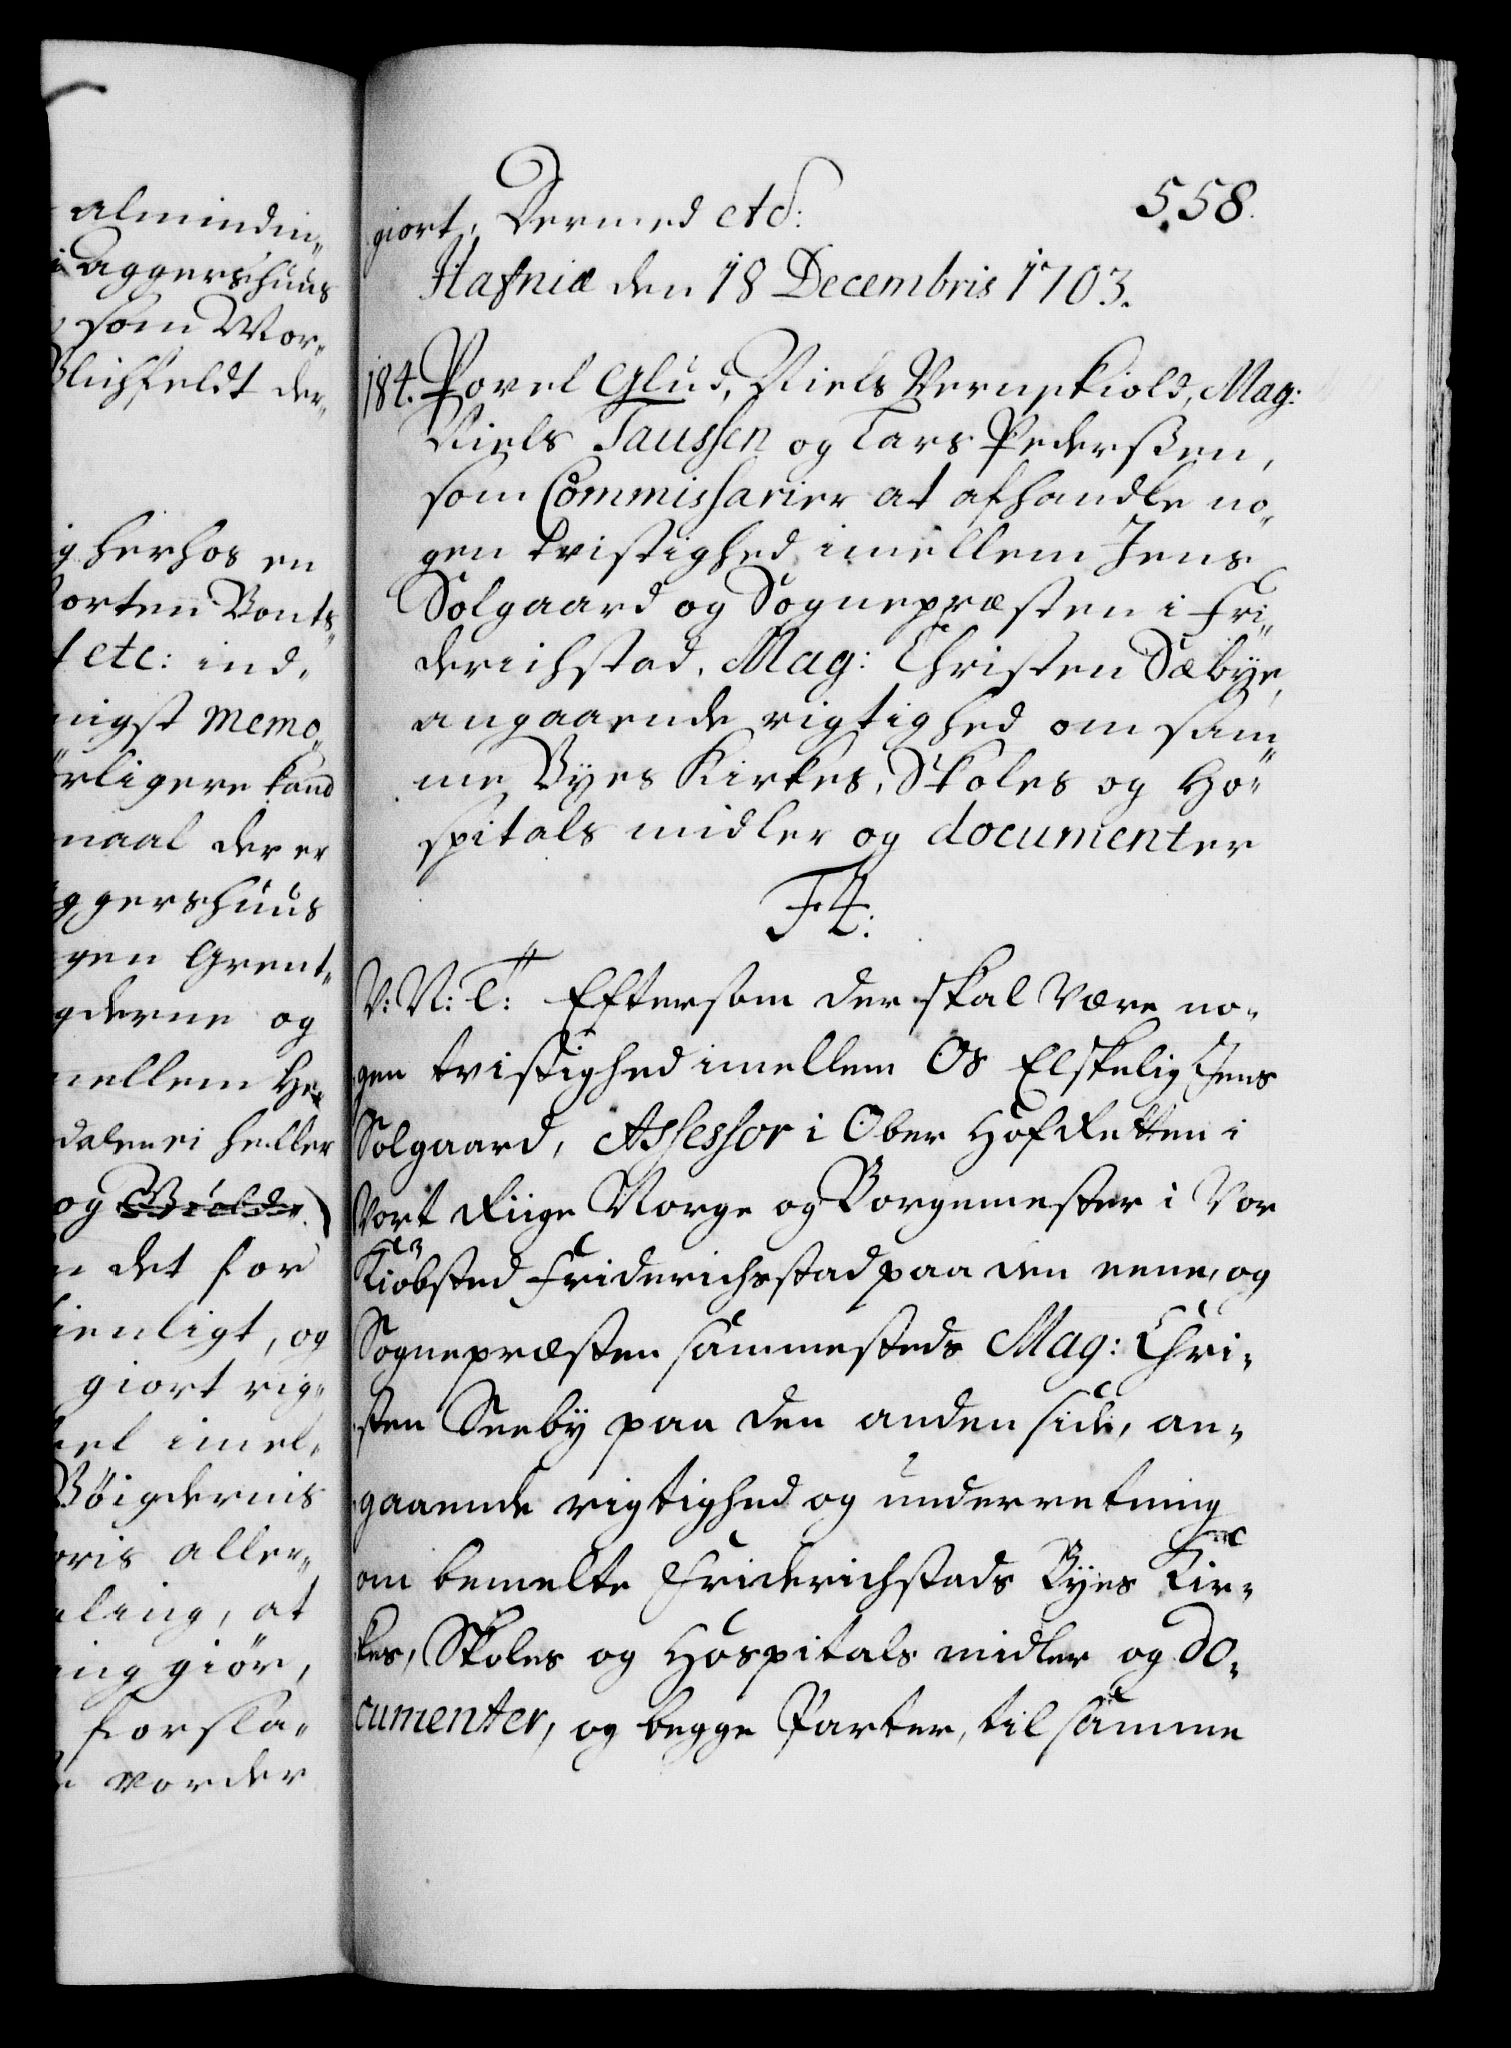 almindin„
i Aggershuus
som Vor„
Blichfeldt der„
herhos en
orten Bonts„
etc: ind„
nigst memo„
rligere kand
maal der er
ggershuus
gen Grent„
gderne og
mellem He„
dalen ei heller
og
det for
ienligt, og
giort rig„
el imel„
Bøigdernis
oris aller„
ling, at
ing giør,
forsla„
vorder
558.
giort, Dermed etc:
Hafniæ den 18 Decembris 1703.
184. Povel Glud, Niels Vernskiold, Mag:
Niels Taussen og Lars Pederßen,
som Commissarier at afhandle no„
gen tvistighed imellem Jens
Solgaard og Sognepræsten i Fri„
derichstad, Mag: Christen Sæbye,
angaaende rigtighed om sam„
me Byes Kirkes, Skoles og Ho„
spitals midler og documenter
F4:
V: N: T: Eftersom der skal være no„
gen tvistighed imellem Os Elskelig Jens
Solgaard, Assessor i Ober Hof Retten i
Vort Riige Norge og Borgemester i Vor
Kiøbsted Friderichstad paa den eene, og
Sognepræsten sammesteds Mag: Chri„
sten Seeby paa den anden side, an„
gaaende rigtighed og underretning
om bemelte Friderichstads Byes Kir„
kes, Skoles og Hospitals midler og do„
cumenter, og begge Parter, til samme